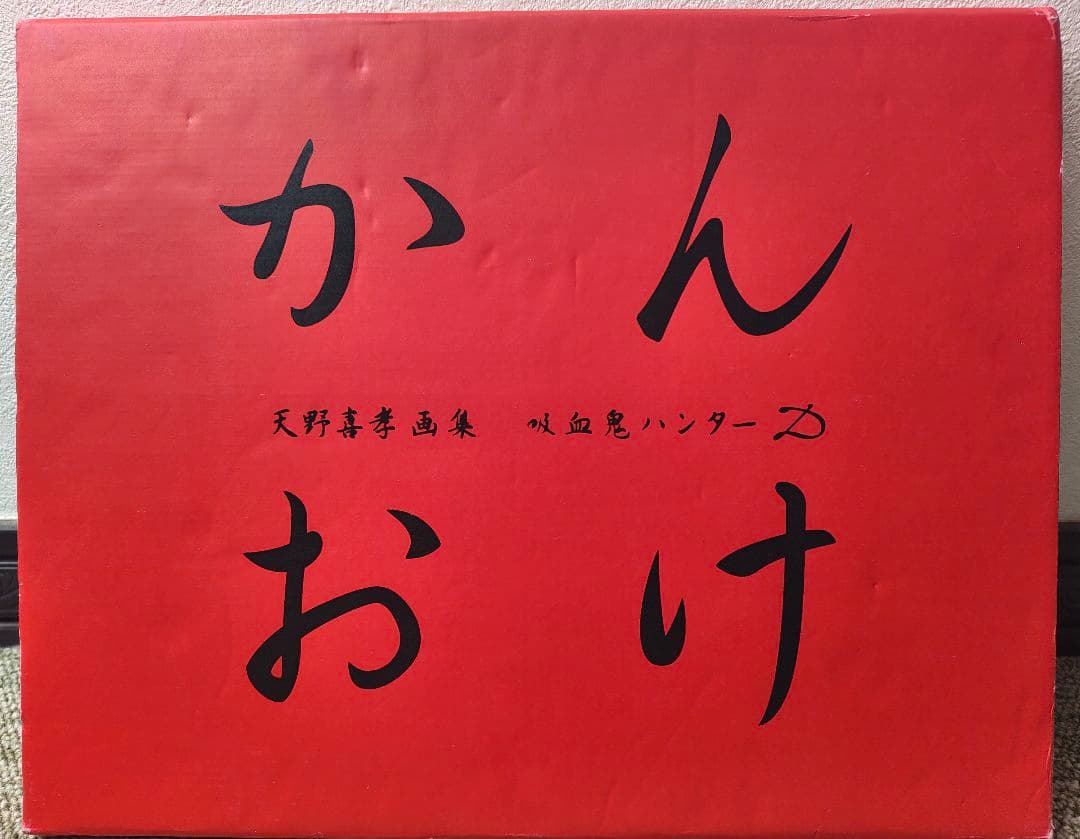 かん
天野喜孝画集　吸血鬼ハンターD
おけ